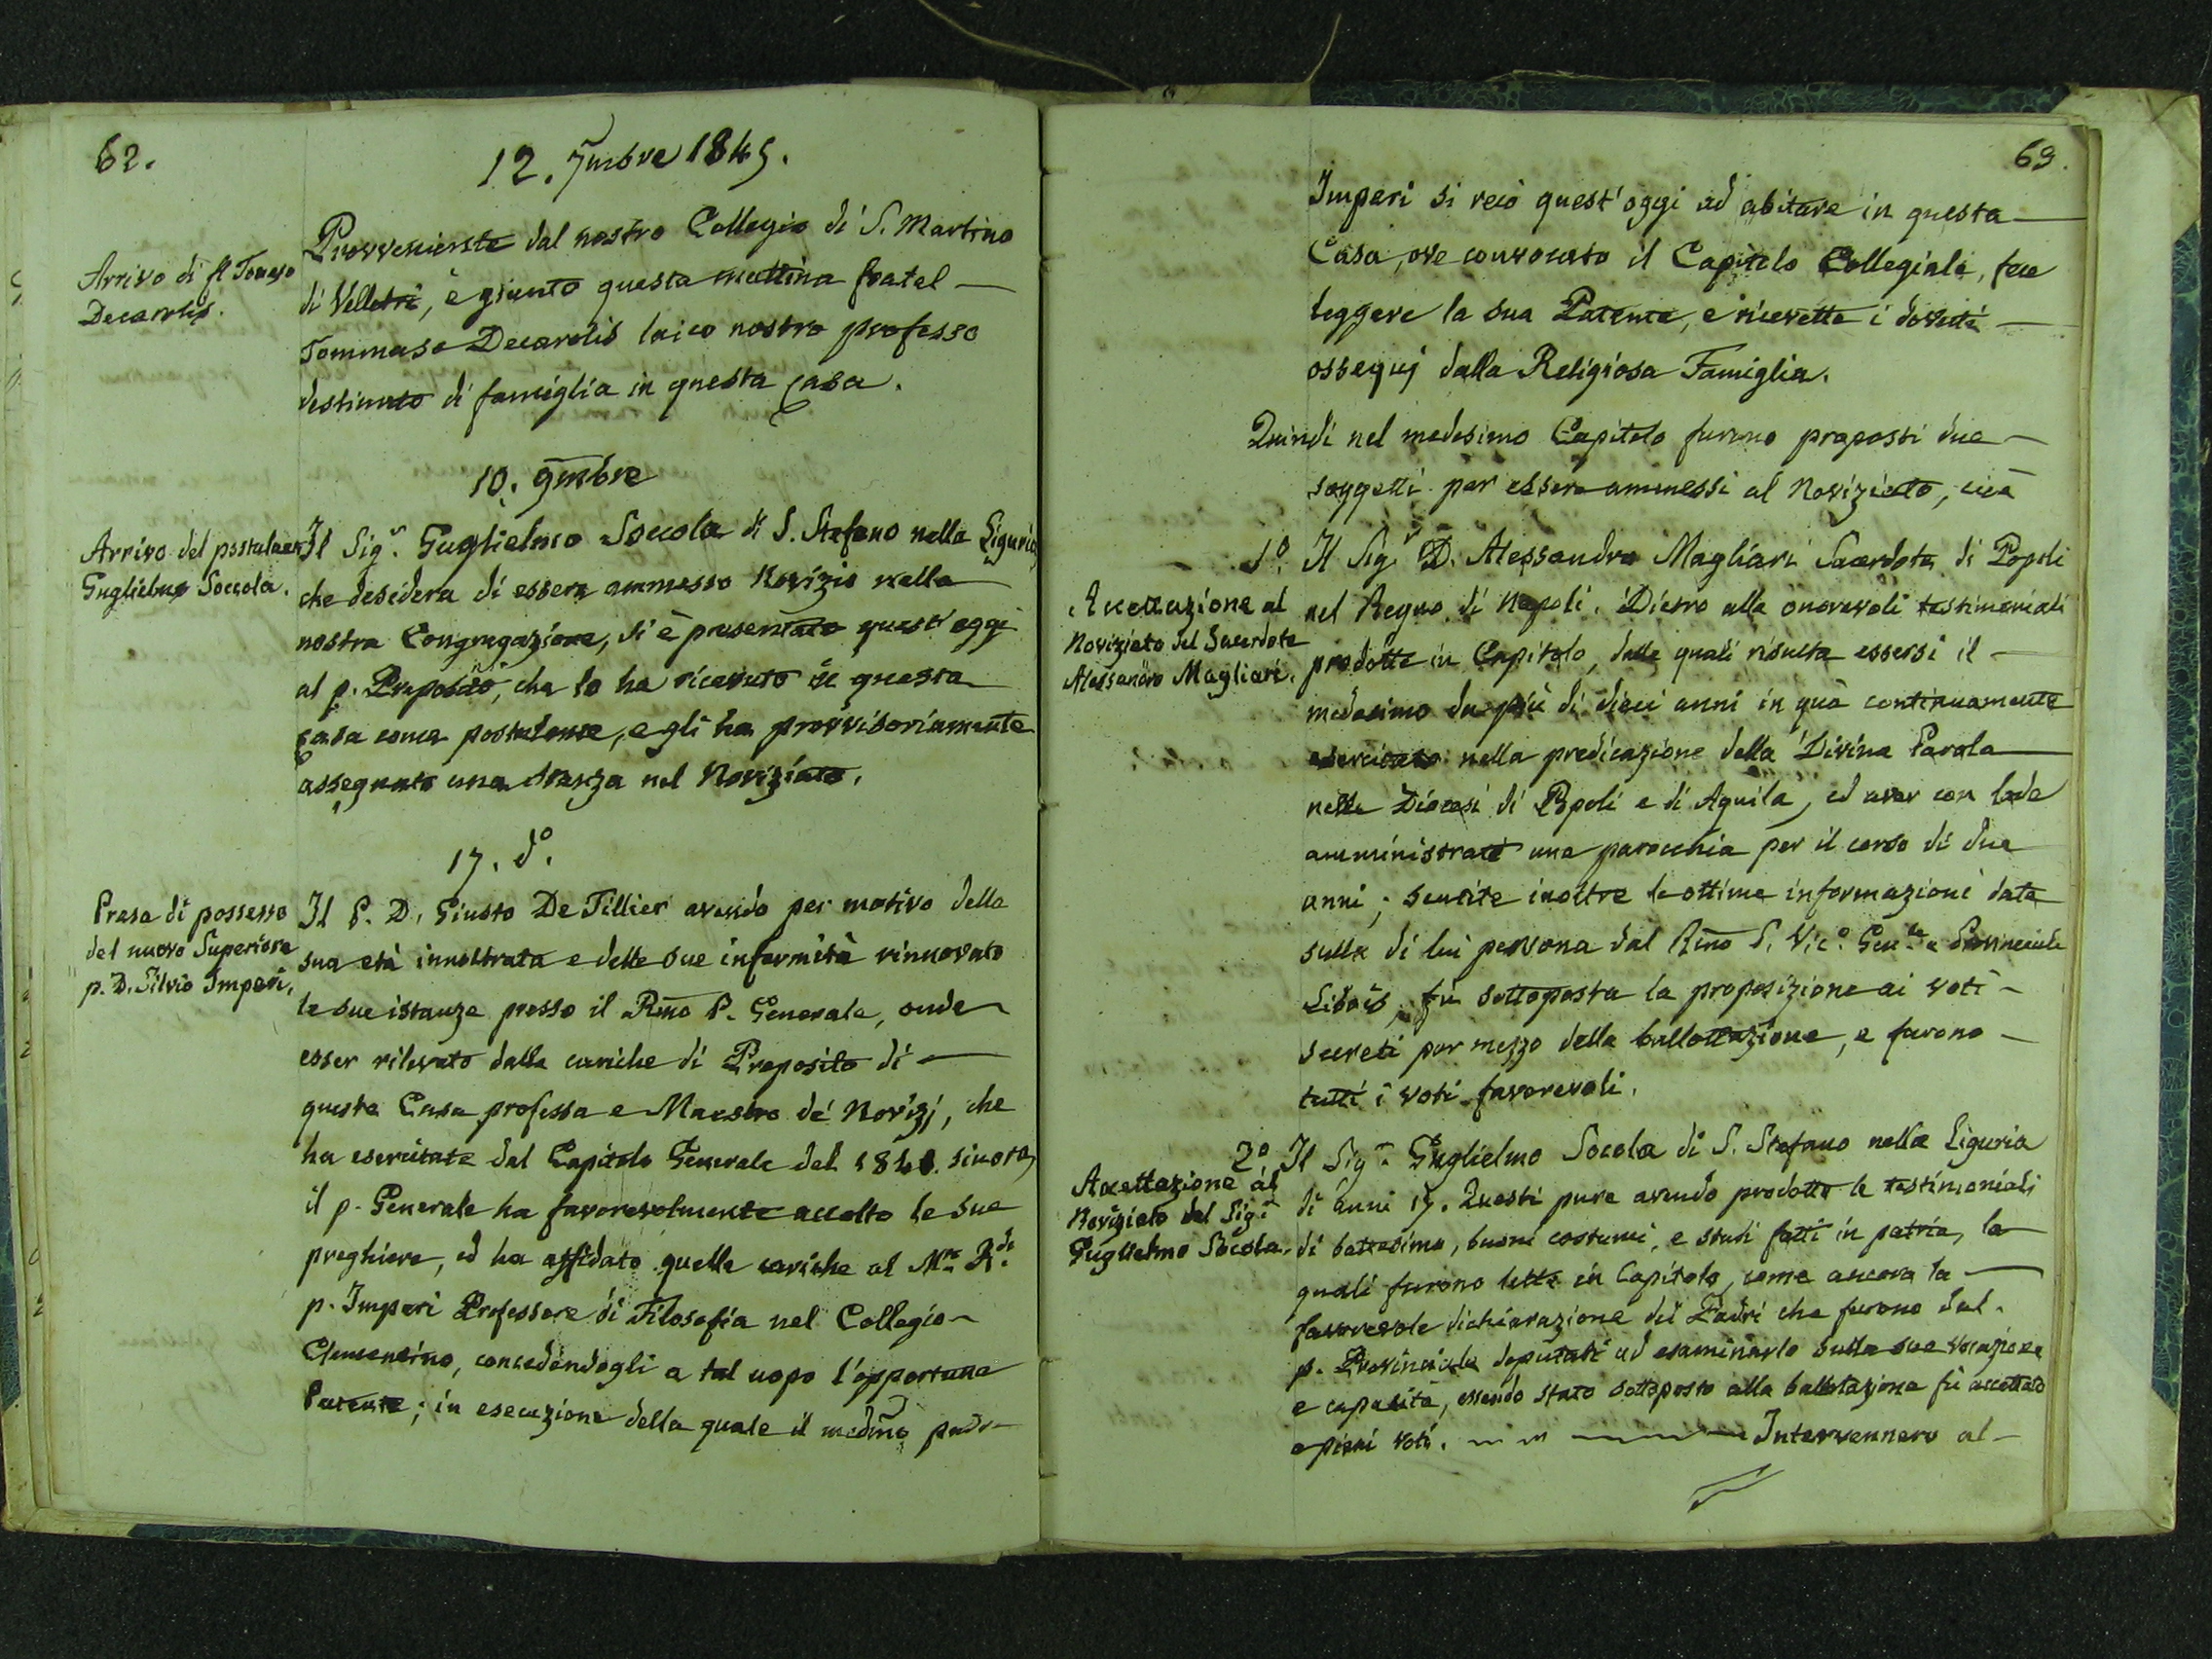 62.
12. 7mbre 1845.
Arrivo di fr Tomaso
Decarolis.
Provveniente dal nostro Collegio di S. Martino
di Velletri, è giunto questa mattina fratel
Tommaso Decarolis laico nostro professo
destinato di famiglia in questa casa.
10. 9mbre
Arrivo del postulante
Guglielmo Soccola.
Il Sigr. Guglielmo Soccola di S. Stefano nella Liguria
che desidera di essere ammesso Novizio nella
nostra Congregazione, si è presentato quest'oggi
al p. Preposito, che lo ha ricevuto in questa
casa come postulante, e gli ha provvisoriamente
assegnato una stanza nel Noviziato.
17. do.
Presa di possesso
del nuovo Superiore
p. D. Silvio Imperi.
Il P. D. Giusto De Tillier avendo per motivo della
sua età innoltrata e delle sue infermità rinnovato
le sue istanze presso il Rmo P. Generale, onde
esser rilevato dalle cariche di Preposito di
questa Casa professa e Maestro de' Novizj, che
ha esercitate dal Capitolo Generale del sinora,
il p. Generale ha favorevolmente accolto le sue
preghiere, ed ha affidato quelle cariche al M. R.
p. Imperi Professore di Filosofia nel Collegio
Clementino, concedendogli a tal uopo l'opportuna
Patente; in esecuzione della quale il medmo padre
63.
Imperi si recò quest'oggi ad abitare in questa
Casa, ove convocato il Capitolo Collegiale, fece
leggere la sua Patente, e ricevette i dovuti
ossequj dalla Religiosa Famiglia.
Quindi nel medesimo Capitolo furono proposti due
soggetti per essere ammessi al Noviziato, cioè
Accettazione al
Noviziato del Sacerdote
Alessandro Magliari.
1o. Il Sigr D. Alessandro Magliari Sacerdote di Popoli
nel Regno di Napoli. Dietro alle onorevoli testimoniali
prodotte in Capitolo, dalle quali risulta essersi il
medesimo da più di dieci anni in quà continuamente
esercitato nella predicazione della Divina Parola
nelle Diocesi di Popoli e di Aquila, ed aver con lode
amministrato una parocchia per il corso di due
anni; sentite inoltre le ottime informazioni date
sulla di lui persona dal Rmo P. Vico. Genle e Provinciale
Libois, fu sottoposta la proposizione ai voti
secreti per mezzo della ballottazione, e furono
tutti i voti favorevoli.
Accettazione al
Noviziato del Sigr
Guglielmo Socola.
2o Il Sigr. Guglielmo Socola di S. Stefano nella Liguria
di anni 17. Questi pure avendo prodotto le testimoniali
di battesimo, buoni costumi, e studi fatti in patria, le
quali furono lette in Capitolo, come ancora la
favorevole dichiarazione dei Padri che furono dal
p. Provinciale deputati ad esaminarlo sulla sua vocazione
e capacità, essendo stato sottoposto alla ballotazione fù accettato
a pieni voti. Intervennero al